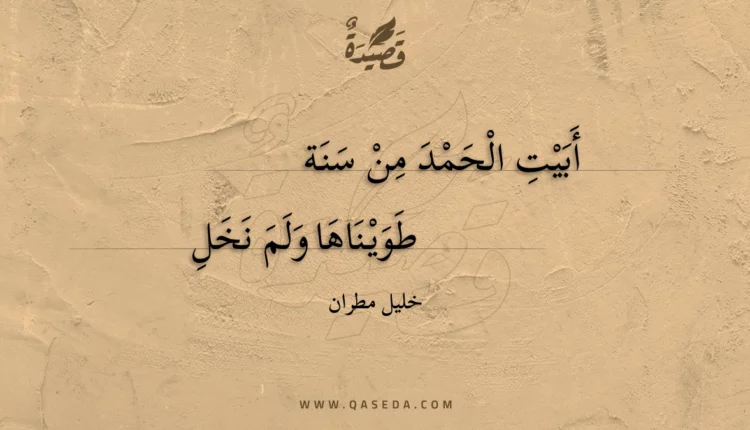 قَصِيدَةٌ
أَبَيْتِ الْحَمْدَ مِنْ سَنَة
طَوَيْنَاهَا وَلَمَ نَخَلِ
خليل مطران
WWW.QASEDA.COM